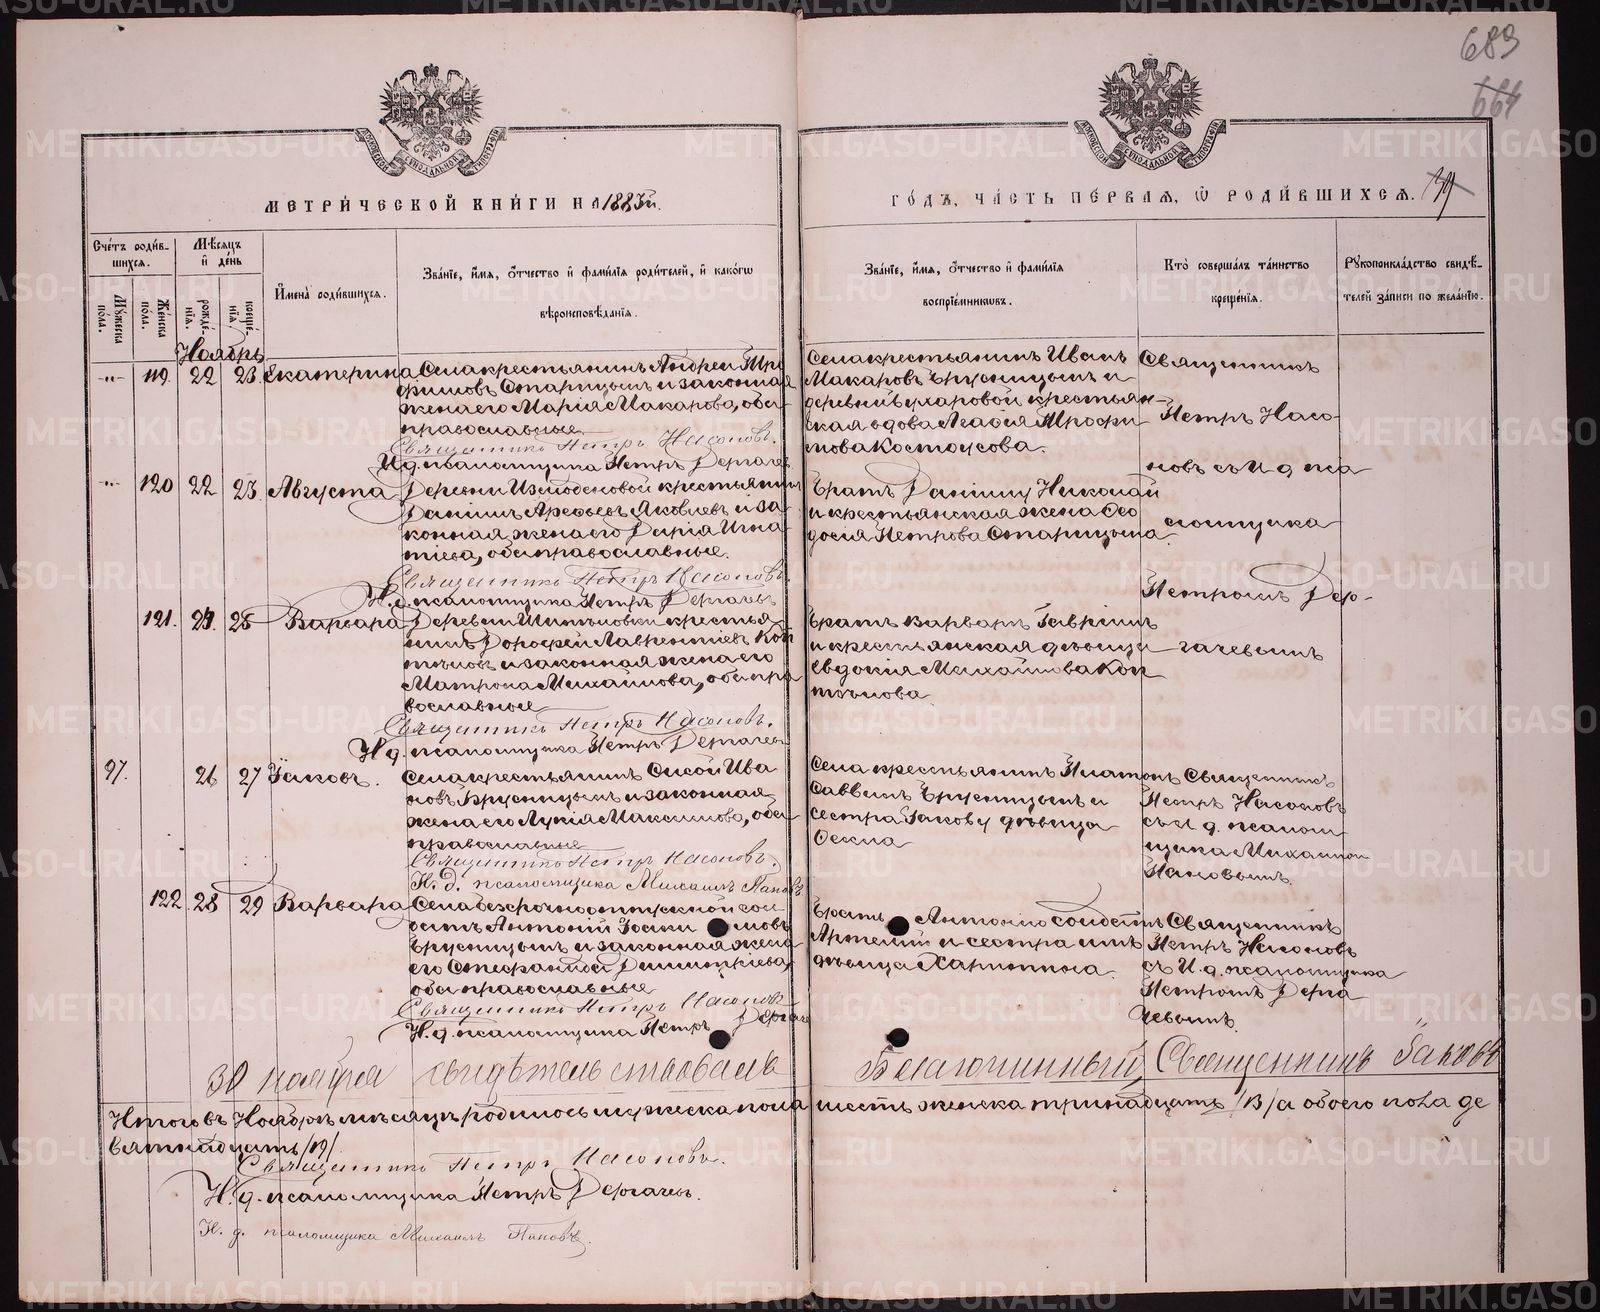 689
664
МЕТРИ́ЧЕСКОЙ КНИ́ГИ НА 1883й.
ГО́ДЪ, ЧА́СТЬ ПЕ́РВАЯ, Ѡ РОДИ́ВШИХСЯ.
Сче́тъ роди́в-
шихся.
Мѣ́сяцъ
и де́нь
Мꙋ́жеска по́ла.
Же́нска по́ла.
рожде́-
нїя.
креще́-
нїя.
И҆мена̀ роди́вшихся.
Зва́нїе, и҆́мя, ѻ҆́тчество и҆ фами́лїя роди́телей, и҆ како́гѡ
вѣроисповѣ́данїя.
Зва́нїе, и҆́мя, ѻ҆́тчество и҆ фами́лїя
воспрїе́мникѡвъ.
Кто̀ соверша́лъ та́инство
креще́нїя.
Рꙋкоприкла́дство свидѣ́-
телей за́писи по жела́нїю.
Ноябрь
119. 22 23. Екатерина
Села крестьянинъ Андрей Тро
фимовъ Старицынъ и законная
жена его Марія Макарова, оба
православные.
Священникъ Петръ Насоновъ.
И.д. псаломщика Петръ Дергачевъ
Села крестьянинъ Иванъ
Макаровъ Брусницынъ и
деревни Бухаровой крестьян-
ская вдова Агафія Трофи
мова Костоусова.
Священникъ
Петръ Насо-
новъ съ И д пса
ломщика
Петромъ Дер-
гачевымъ
120 22 23. Августа
Деревни Измоденовой крестьянинъ
Даніилъ Арефьевъ Яковлевъ и за
конная жена его Дарія Игна
тіева, оба православные.
Священникъ Петръ Насоновъ.
И.д. псаломщика Петръ Дергачевъ
Братъ Даніилу Николай
и крестьянская жена Ѳео
досія Петрова Старицына.
121. 24. 25 Варвара
Деревни крестья
нинъ Дороѳей Лаврентіевъ Коп
тѣловъ и законная жена его
Матрона Михайлова, оба пра
вославные
Священникъ Петръ Насоновъ.
И д. псаломщика Петръ Дергачевъ
Братъ Варварѣ Гавріилъ
и крестьянская дѣвица
Евдокія Михайлова Коп
тѣлова
97. 26 27 Іаковъ.
Села крестьянинъ Сисой Ива
новъ Брусницынъ и законная
жена его Лукія Максимова, оба
православные
Священникъ Петръ Насоновъ.
И. д. псаломщика Михаилъ Пановъ
Села крестьянинъ Платонъ
Саввинъ Брусницынъ и
сестра Іакову дѣвица
Ѳекла
Священникъ
Петръ Насоновъ
съ и д. псалом
щика Михаиломъ
Пановымъ.
122 28 29 Варвара
Села безсрочноотпускной сол
датъ Антоній Іоаки мовъ
Брусницынъ и законная жена
его Стефанида Димитріева,
оба православные
Священникъ Петръ Насоновъ
И. д. псаломщика Петръ Дергачевъ
Братъ Антонію солдатъ
Артемій и сестра имъ
дѣвица Харитина.
Священникъ
Петръ Насоновъ
съ И. д. псаломщика
Петромъ Дерга
чевымъ.
30 ноября свидѣтельствовалъ Благочинный, Священникъ Іаковъ
Итого въ Ноябрѣ мѣсяцѣ родилось мужеска пола шесть женска тринадцать /13/ а обоего пола де
вятнадцать /19/
Священникъ Петръ Насоновъ.
И. д. псаломщика Петръ Дергачевъ.
И. д. псаломщика Михаилъ Пановъ.